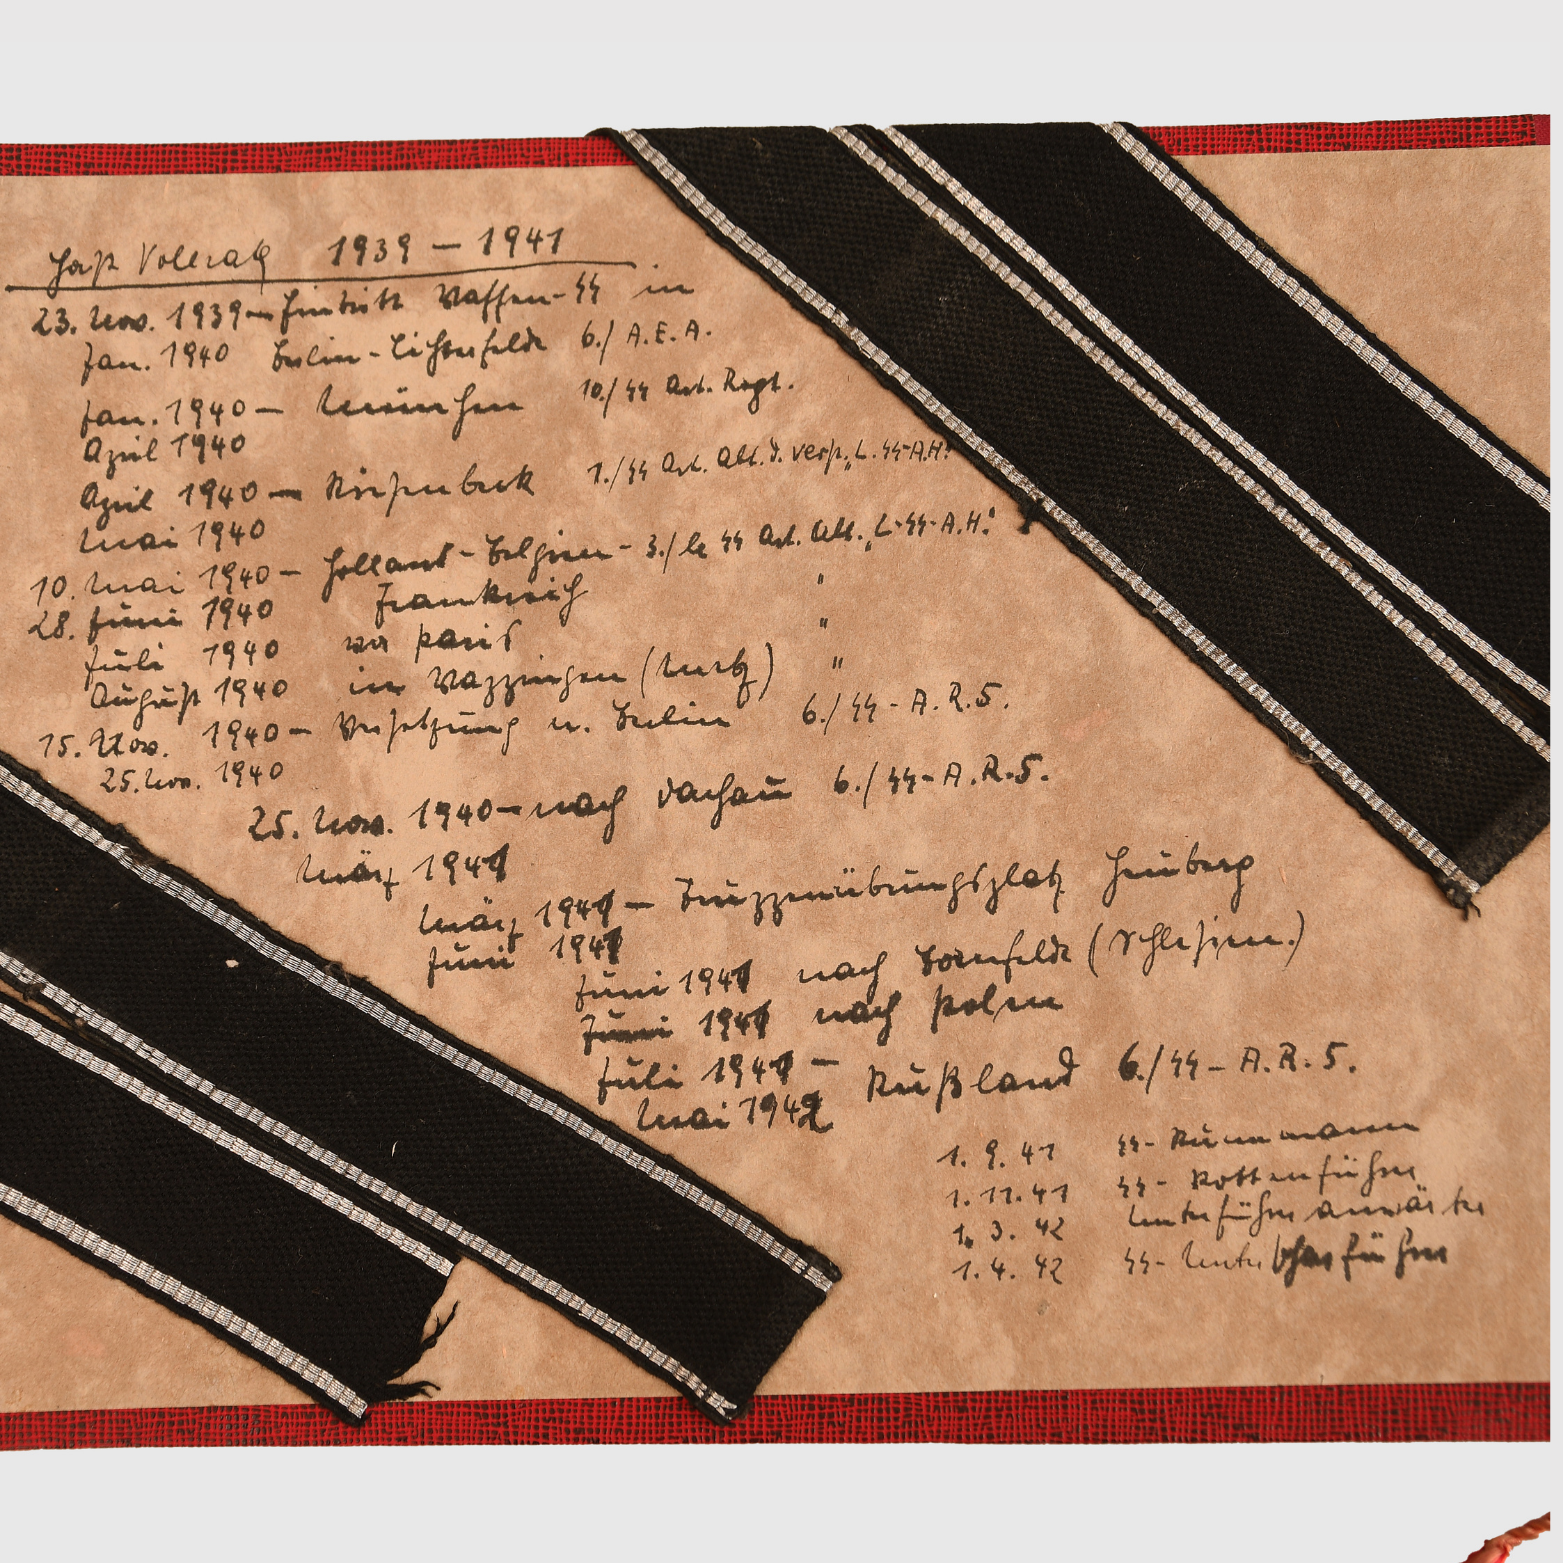 Horst Vollrath 1939 – 1941
23. Nov. 1939 – Eintritt Waffen-SS in
Jan. 1940 Berlin-Lichterfelde 6./ A.E.A.
Jan. 1940 – München 10./ SS Art. Regt.
April 1940
April 1940 – Riesenbeck 1./ SS Art. Abt. z. Verf. „L.SS-A.H."
Mai 1940
10. Mai 1940 – Holland-Belgien- 3./ le SS Art. Abt. „L-SS-A.H."
28. Juni 1940 Frankreich "
Juli 1940 vor Paris "
August 1940 in Wappingen (Metz) "
15. Nov. 1940 – Versetzung n. Berlin 6./ SS-A.R.5.
25. Nov. 1940
25. Nov. 1940 – nach Dachau 6./ SS-A.R.5.
März 1941
März 1941 – Truppenübungsplatz Heuberg
Juni 1941
Juni 1941 nach (Schlesien.)
Juni 1941 nach Polen
Juli 1941 –
Mai 1942 Rußland 6./ SS-A.R.5.
1. 9. 41 SS-
1. 11. 41 SS-Rottenführer
1. 3. 42 Unterführeranwärter
1. 4. 42 SS-Unterscharführer